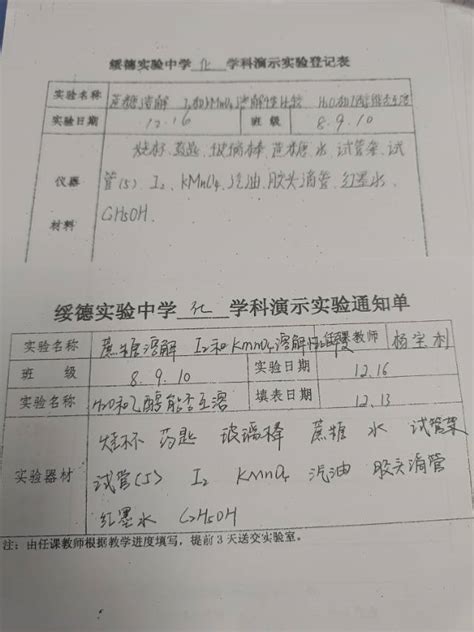 绥德实验中学 化 学科演示实验登记表
实验名称 蔗糖溶解 I2和KMnO4溶解性比较 H2O和乙醇能否互溶
实验日期 12.16 班 级 8.9.10
烧杯、药匙、玻璃棒、蔗糖、水、试管架、试
仪器 管(5)、I2、KMnO4、汽油、胶头滴管、红墨水、
材料 C2H5OH.
绥德实验中学 化 学科演示实验通知单
实验名称 蔗糖溶解 I2和KMnO4溶解性 任课教师
班 级 8.9.10 实验日期 12.16
实验名称 H2O和乙醇能否互溶 填表日期 12.13
烧杯 药匙 玻璃棒 蔗糖 水 试管架
实验器材 试管(5) I2 KMnO4 汽油 胶头滴管
红墨水 C2H5OH
注：由任课教师根据教学进度填写，提前3天送交实验室。